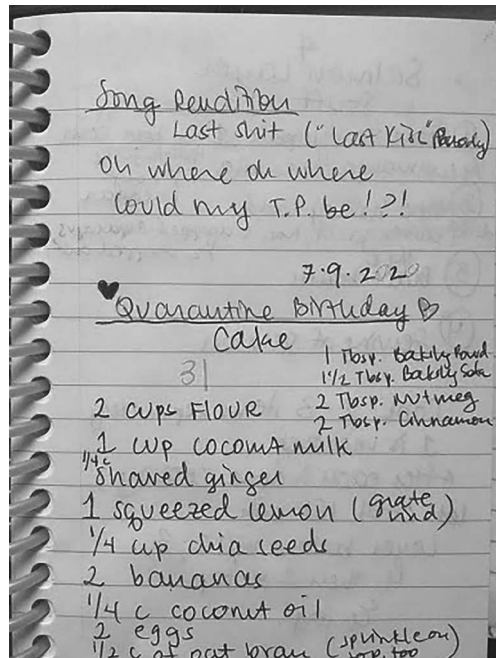 Song Rendition
Last shit ("Last Kiss" Parody)
oh where oh where
could my T.P. be!?!
7.9.2020
Quarantine Birthday
Cake
31
1 Tbsp. Baking Powd.
1 1/2 Tbsp. Baking Soda
2 cups FLOUR
2 Tbsp. Nutmeg
2 Tbsp. Cinnamon
1 cup coconut milk
1/4 c
shaved ginger
1 squeezed lemon (grate rind)
1/4 cup chia seeds
2 bananas
1/4 c coconut oil
2 eggs
1/2 c of oat bran (sprinkle on top too